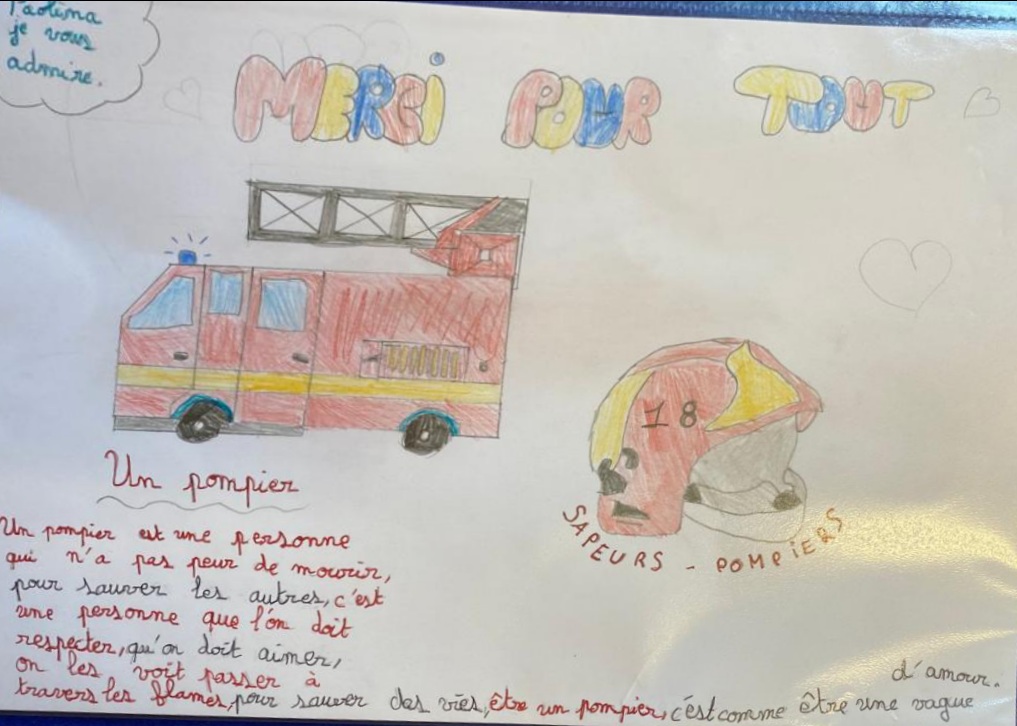 je vous
admire.
MERCI POUR TOUT
18
SAPEURS - POMPIERS
Un pompier
Un pompier est une personne
qui n'a pas peur de mourir,
pour sauver les autres, c'est
une personne que l'on doit
respecter, qu'on doit aimer,
on les voit passer à
travers les flames, pour sauver des vies, être un pompier, c'est comme être une vague
d'amour.